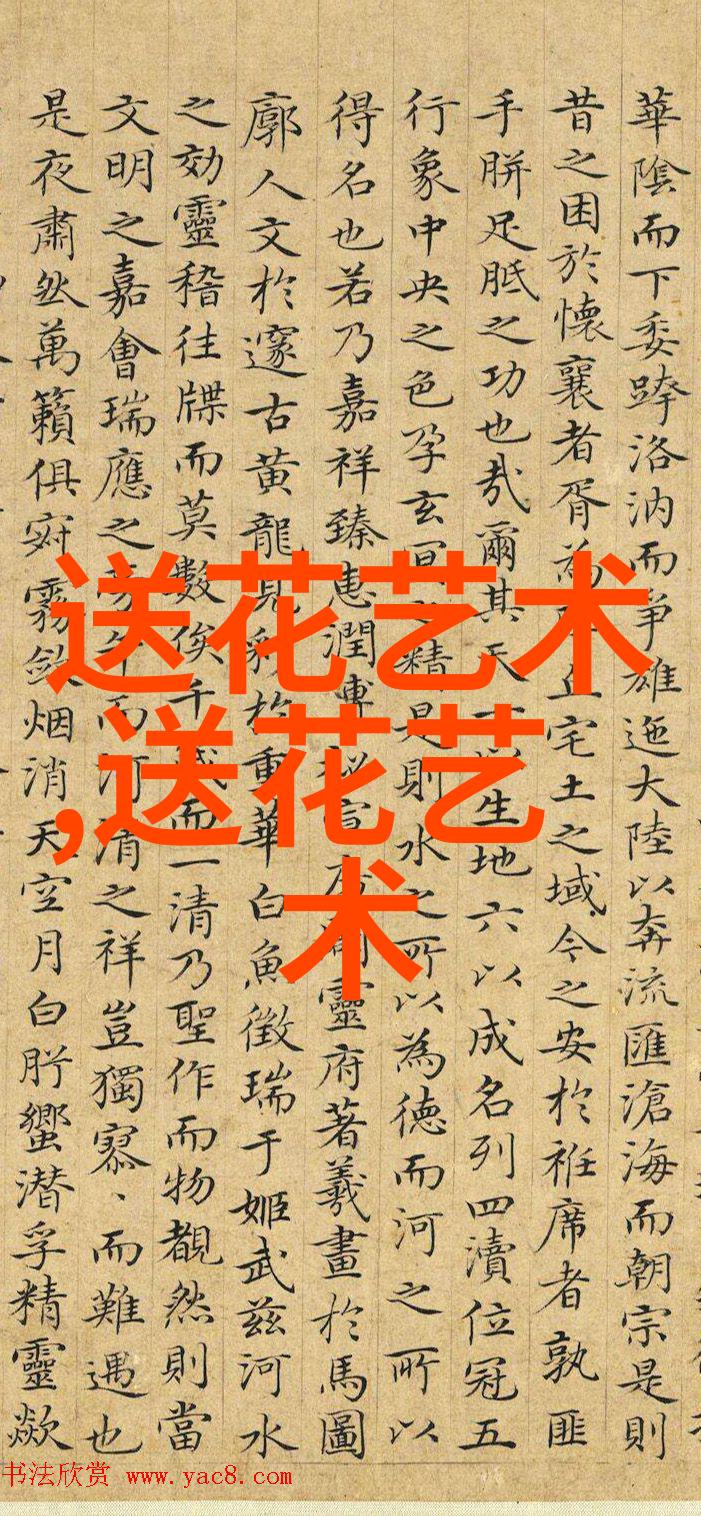 華陰而下委跨洛汭而爭雄迤大陸以奔流匯滄海而朝宗是則
昔之困於懷襄者胥為丘宅土之域今之安於袵席者孰匪
手胼足胝之功也哉爾其天一生地六以成名列四瀆位冠五
行象中央之色孕玄冥之精是則水之所以為德而河之所以
得名也若乃嘉祥臻惠潤靈府著羲畫於馬圖
廓人文於邃古黃龍見彩於重華白魚徵瑞于姬武茲河水
之効靈稽往牒而莫數俟千歲而一清乃聖作而物覩然則當
文明之嘉會瑞應之而河清之祥豈獨寥、而難遇也
是夜肅然萬籟俱寂霧斂烟消天空月白肸蠁潛孚精靈歘
送花艺术
,送花艺
术
书法欣赏 www.yac8.com